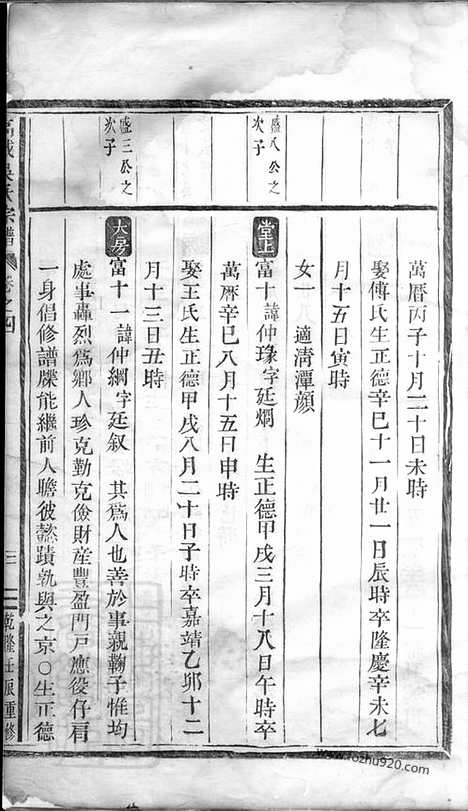 萬曆丙子十月二十日未時
娶傅氏生正德辛巳十一月廿一日辰時卒隆慶辛未七
月十五日寅時
女一 適清潭顔
盛八公之
次子
堂上
富十諱仲瑑字廷烱 生正德甲戌三月十八日午時卒
萬曆辛巳八月十五日申時
娶王氏生正德甲戌八月二十日子時卒嘉靖乙卯十二
月十三日丑時
盛三公之
次子
大房
富十一諱仲綱字廷叙 其爲人也善於事親鞠子惟均
處事轟烈爲鄉人珍克勤克儉財産豐盈門戸應役仔肩
一身倡修譜牒能繼前人瞻彼懿蹟孰與之京○生正德
氏宗譜
卷之四
三
乾隆壬辰重修
www.fozhu920.com